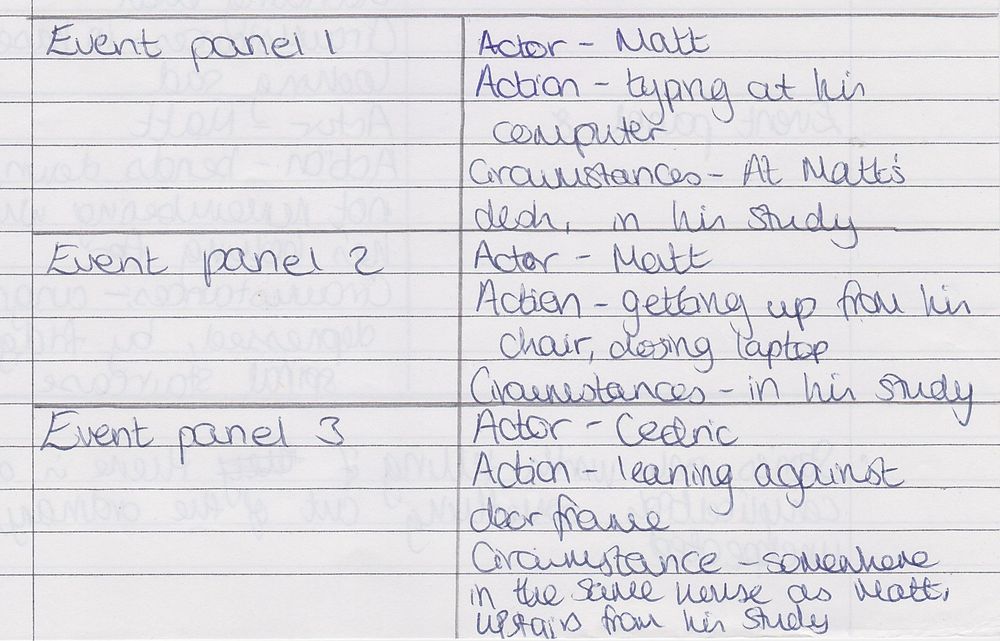 Event panel 1
Actor - Matt
Action - typing at his
computer
Circumstances - At Matt's
desk, in his study
Event panel 2
Actor - Matt
Action - getting up from his
chair, closing laptop
Circumstances - in his study
Event panel 3
Actor - Cedric
Action - leaning against
door frame
Circumstance - somewhere
in the same house as Matt,
upstairs from his study